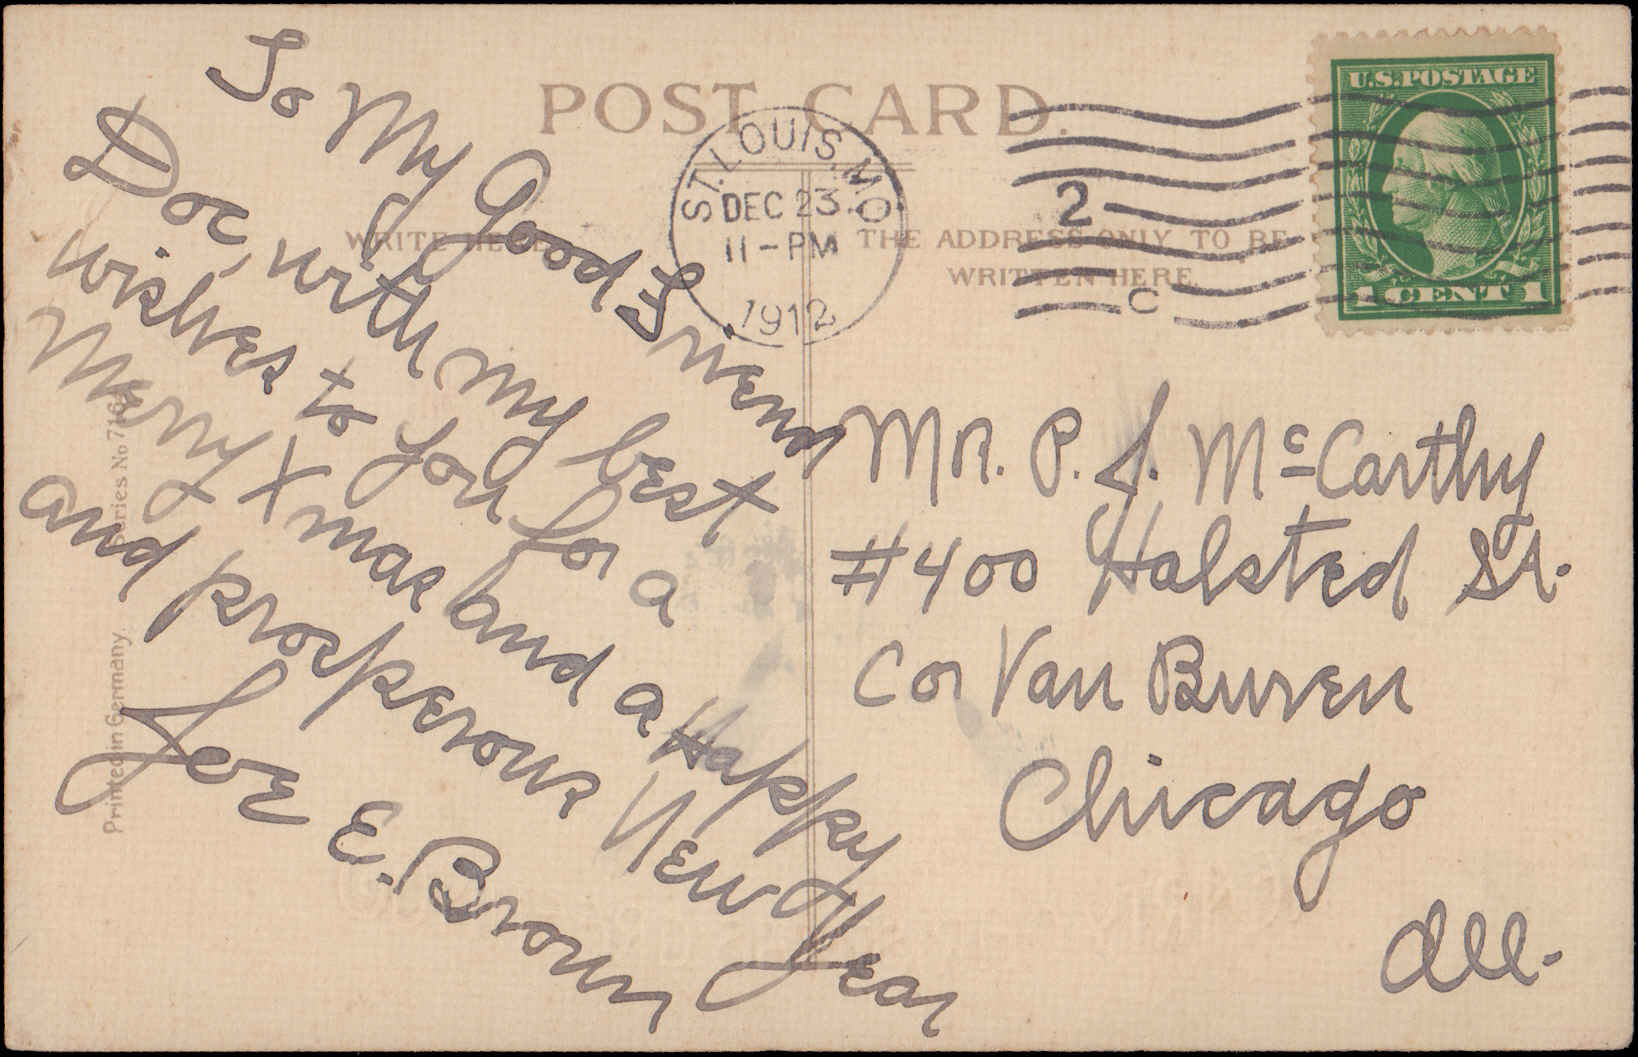 POST CARD.
WRITE HERE
THE ADDRESS ONLY TO BE
WRITTEN HERE.
ST. LOUIS. MO.
DEC 23
11-PM
1912
2
C
U.S. POSTAGE
1 CENT 1
To My Good Friend
Doc, with my best
wishes to you for a
Merry Xmas and a Happy
and prosperous New Year
Joe E. Brown
Mr. P. J. McCarthy
#400 Halsted St.
Cor Van Buren
Chicago
Ill.
Series No 716
Printed in Germany.